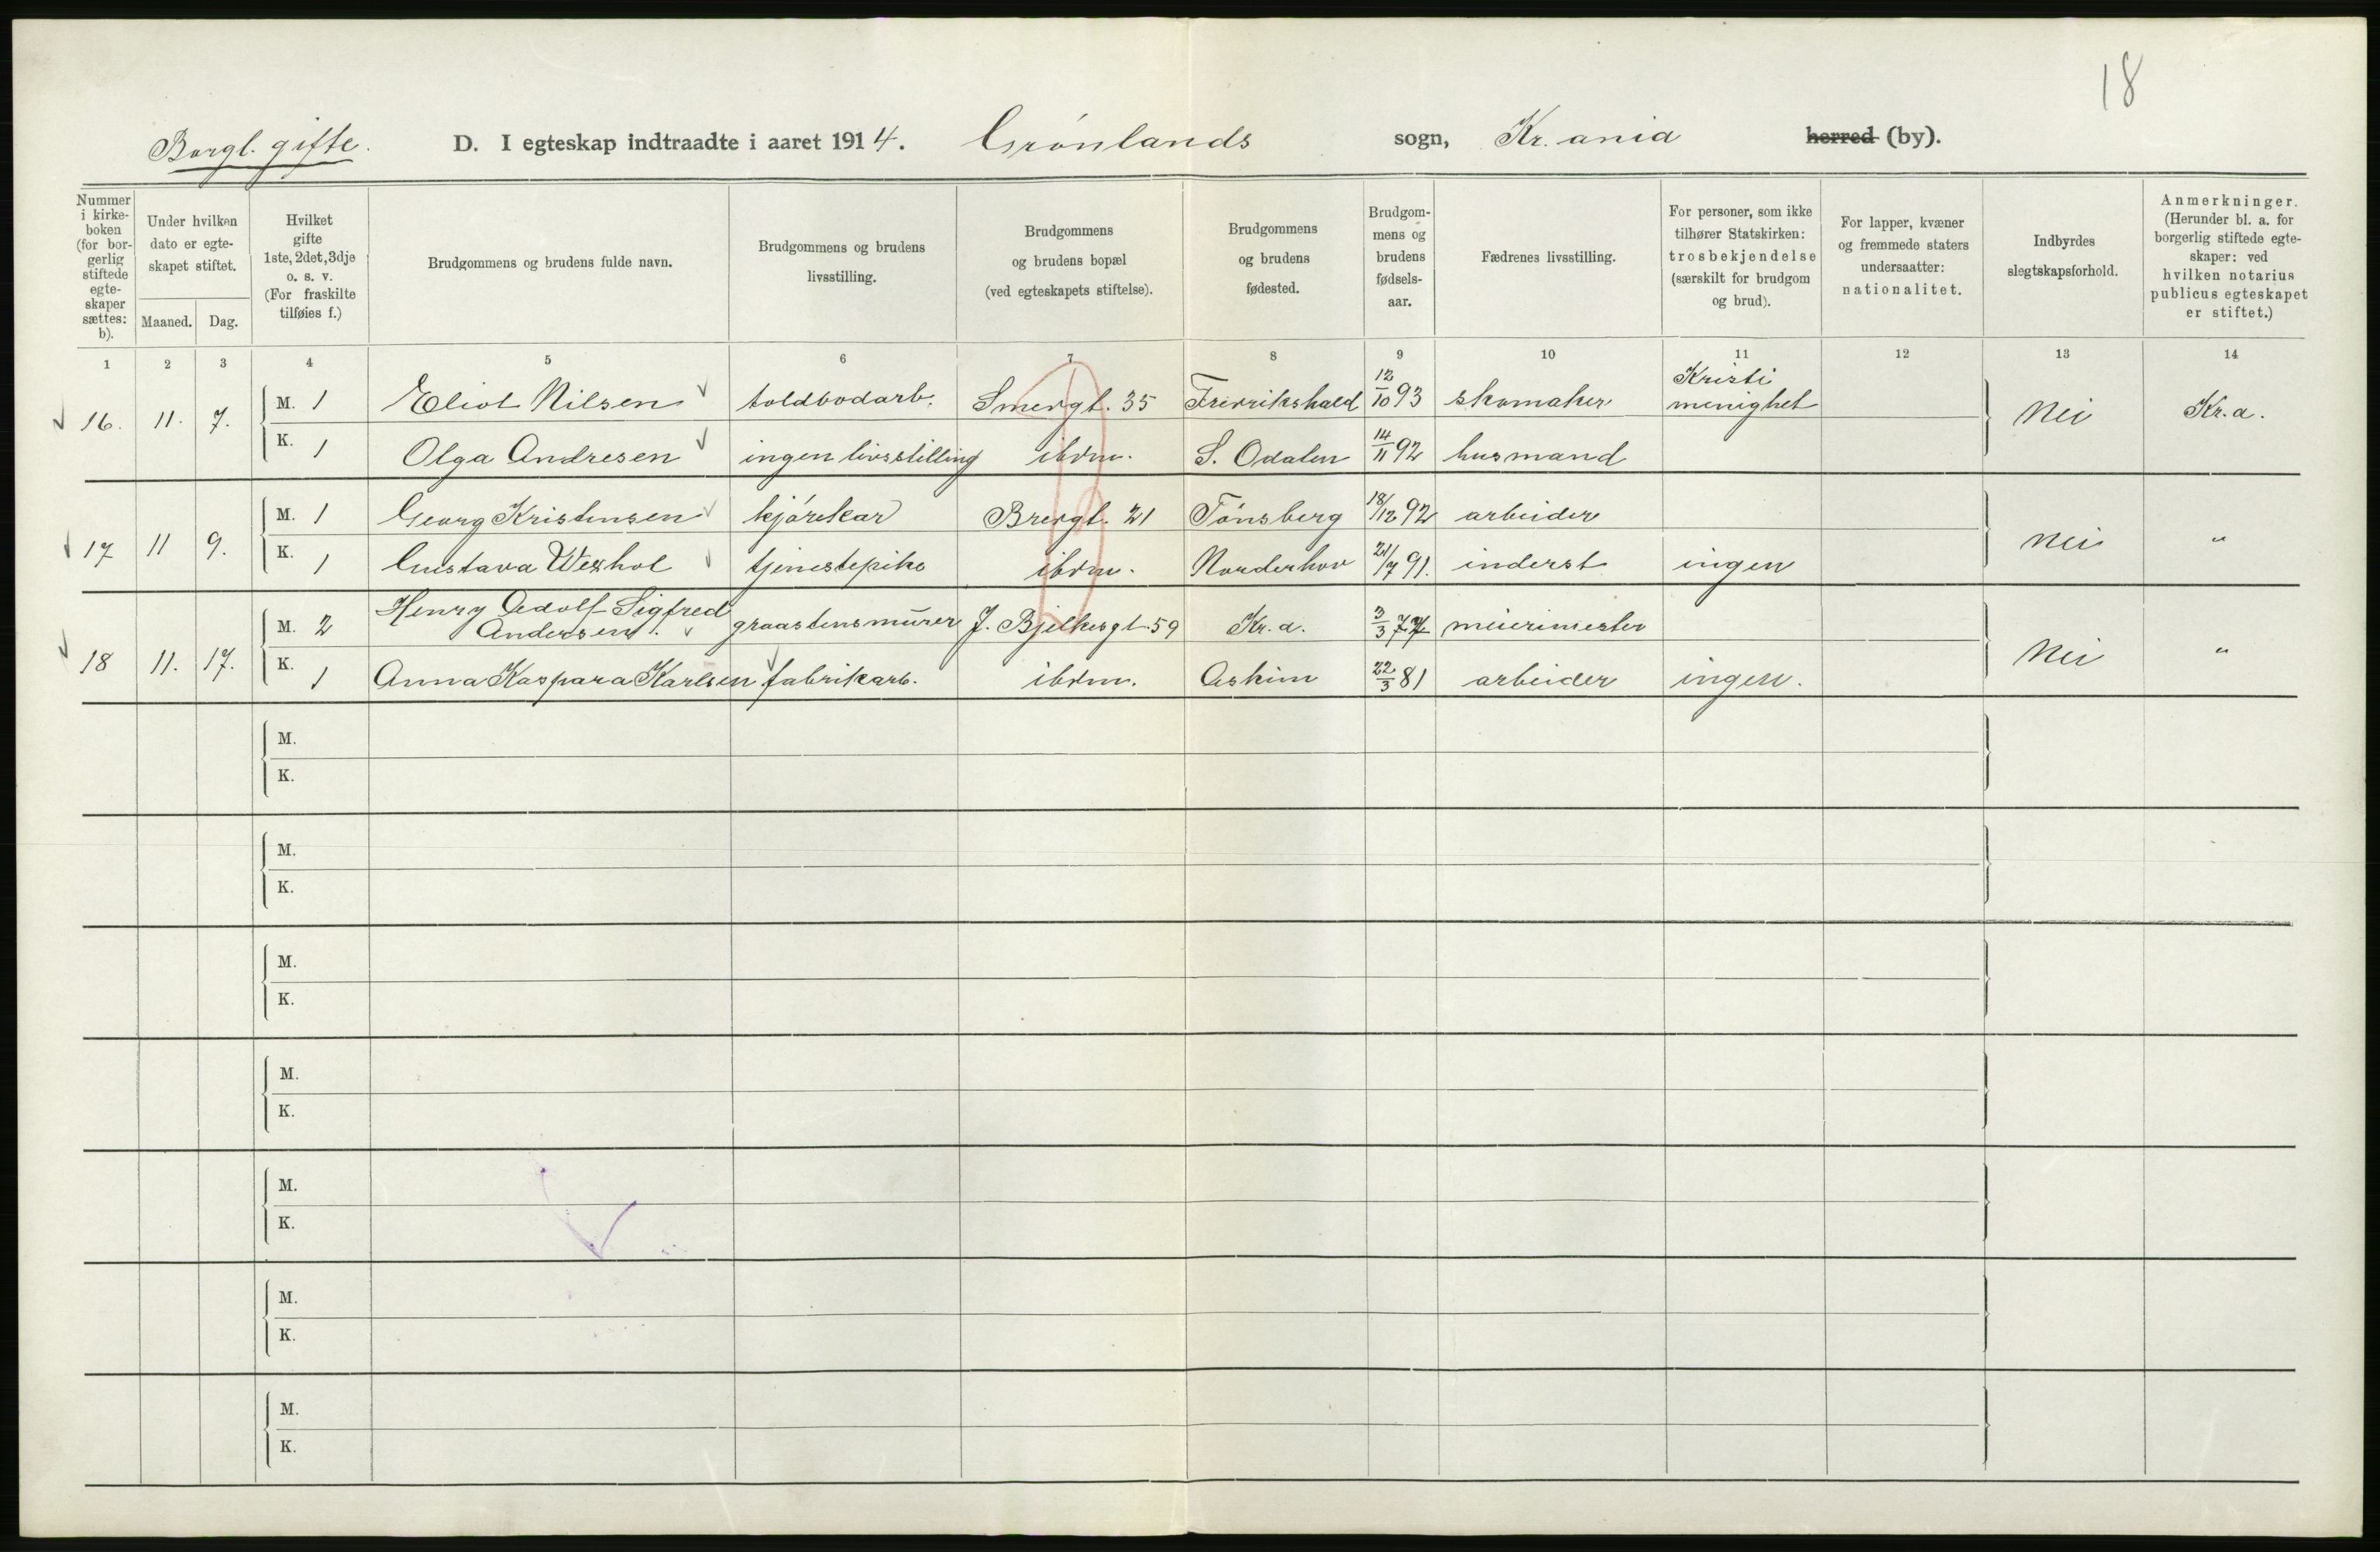 18
Borgl. gifte. D. I egteskap indtraadte i aaret 1914. Grønlands sogn, Kr.ania herred (by).
Nummer i kirkeboken (for borgerlig stiftede egteskaper sættes: b).
Under hvilken dato er egteskapet stiftet.
Maaned. Dag.
Hvilket gifte 1ste, 2det, 3dje o. s. v. (For fraskilte tilføies f.)
Brudgommens og brudens fulde navn.
Brudgommens og brudens livsstilling.
Brudgommens og brudens bopæl (ved egteskapets stiftelse).
Brudgommens og brudens fødested.
Brudgommens og brudens fødselsaar.
Fædrenes livsstilling.
For personer, som ikke tilhører Statskirken: trosbekjendelse (særskilt for brudgom og brud).
For lapper, kvæner og fremmede staters undersaatter: nationalitet.
Indbyrdes slegtskapsforhold.
Anmerkninger. (Herunder bl. a. for borgerlig stiftede egteskaper: ved hvilken notarius publicus egteskapet er stiftet.)
1 2 3 4 5 6 7 8 9 10 11 12 13 14
16. 11. 7. M. 1 Eliot Nilsen toldbodarb. Smergt. 35 Fredrikshald 12/10 93 skomaker Kristi menighet Nei Kr.a.
K. 1 Olga Andresen ingen livsstilling ibdm. S. Odalen 14/11 92 husmand
17 11 9. M. 1 Georg Kristensen kjørekar Bredgt. 21 Tønsberg 18/12 92 arbeider Nei "
K. 1 Gustava Wexhol tjenestepike ibdm. Norderhov 21/7 91. inderst ingen
18 11. 17. M. 2 Henry Adolf Sigfred Andersen. graastensmurer J. Bjelkesgt. 59 Kr.a. 3/3 77 meierimester Nei "
K. 1 Anna Kaspara Karlsen fabrikarb. ibdm. Askim 22/3 81 arbeider ingen.
M.
K.
M.
K.
M.
K.
M.
K.
M.
K.
M.
K.
M.
K.